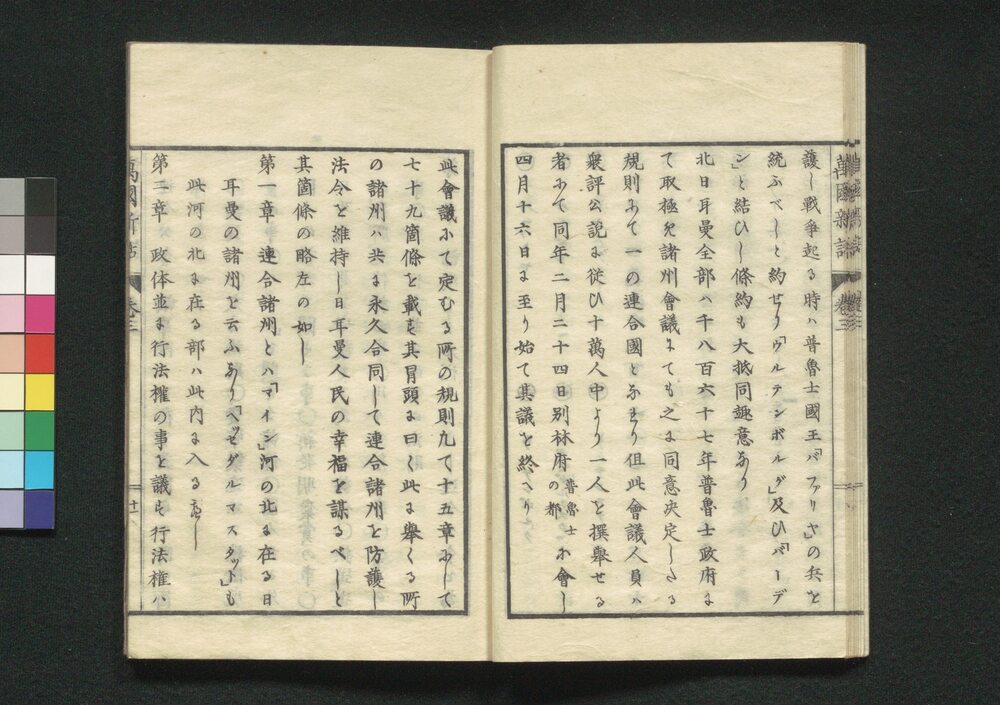 護し戦争起る時ハ普魯士國王「バファリヤ」の兵を
統ふべしと約せり「ウルテンボルグ」及ひ「バーデ
ン」と結ひし條約も大抵同趣意なり
北日耳曼全部ハ千八百六十七年普魯士政府に
て取極め諸州會議にても之に同意決定したる
規則にて一の連合國となせり但此會議人員ハ
衆評公説に従ひ十萬人中より一人と撰舉せる
者にて同年二月二十四日別林府普魯士の都に會し
四月十六日に至り始て其議を終へり
此會議にて定むる所の規則凡て十五章にして
七十九箇條を載す其冒頭に曰く此に舉くる所
の諸州ハ共に永久合同して連合諸州を防護し
法令を維持し日耳曼人民の幸福を謀るべしと
其箇條の略左の如し
第一章 連合諸州とハ「マイン」河の北に在る日
耳曼の諸州を云ふなり「ヘッセダルマスタット」も
此河の北に在る部ハ此内に入るべし
第二章 政体並に行法權の事を議す行法權ハ
萬國新話
卷三
廿一